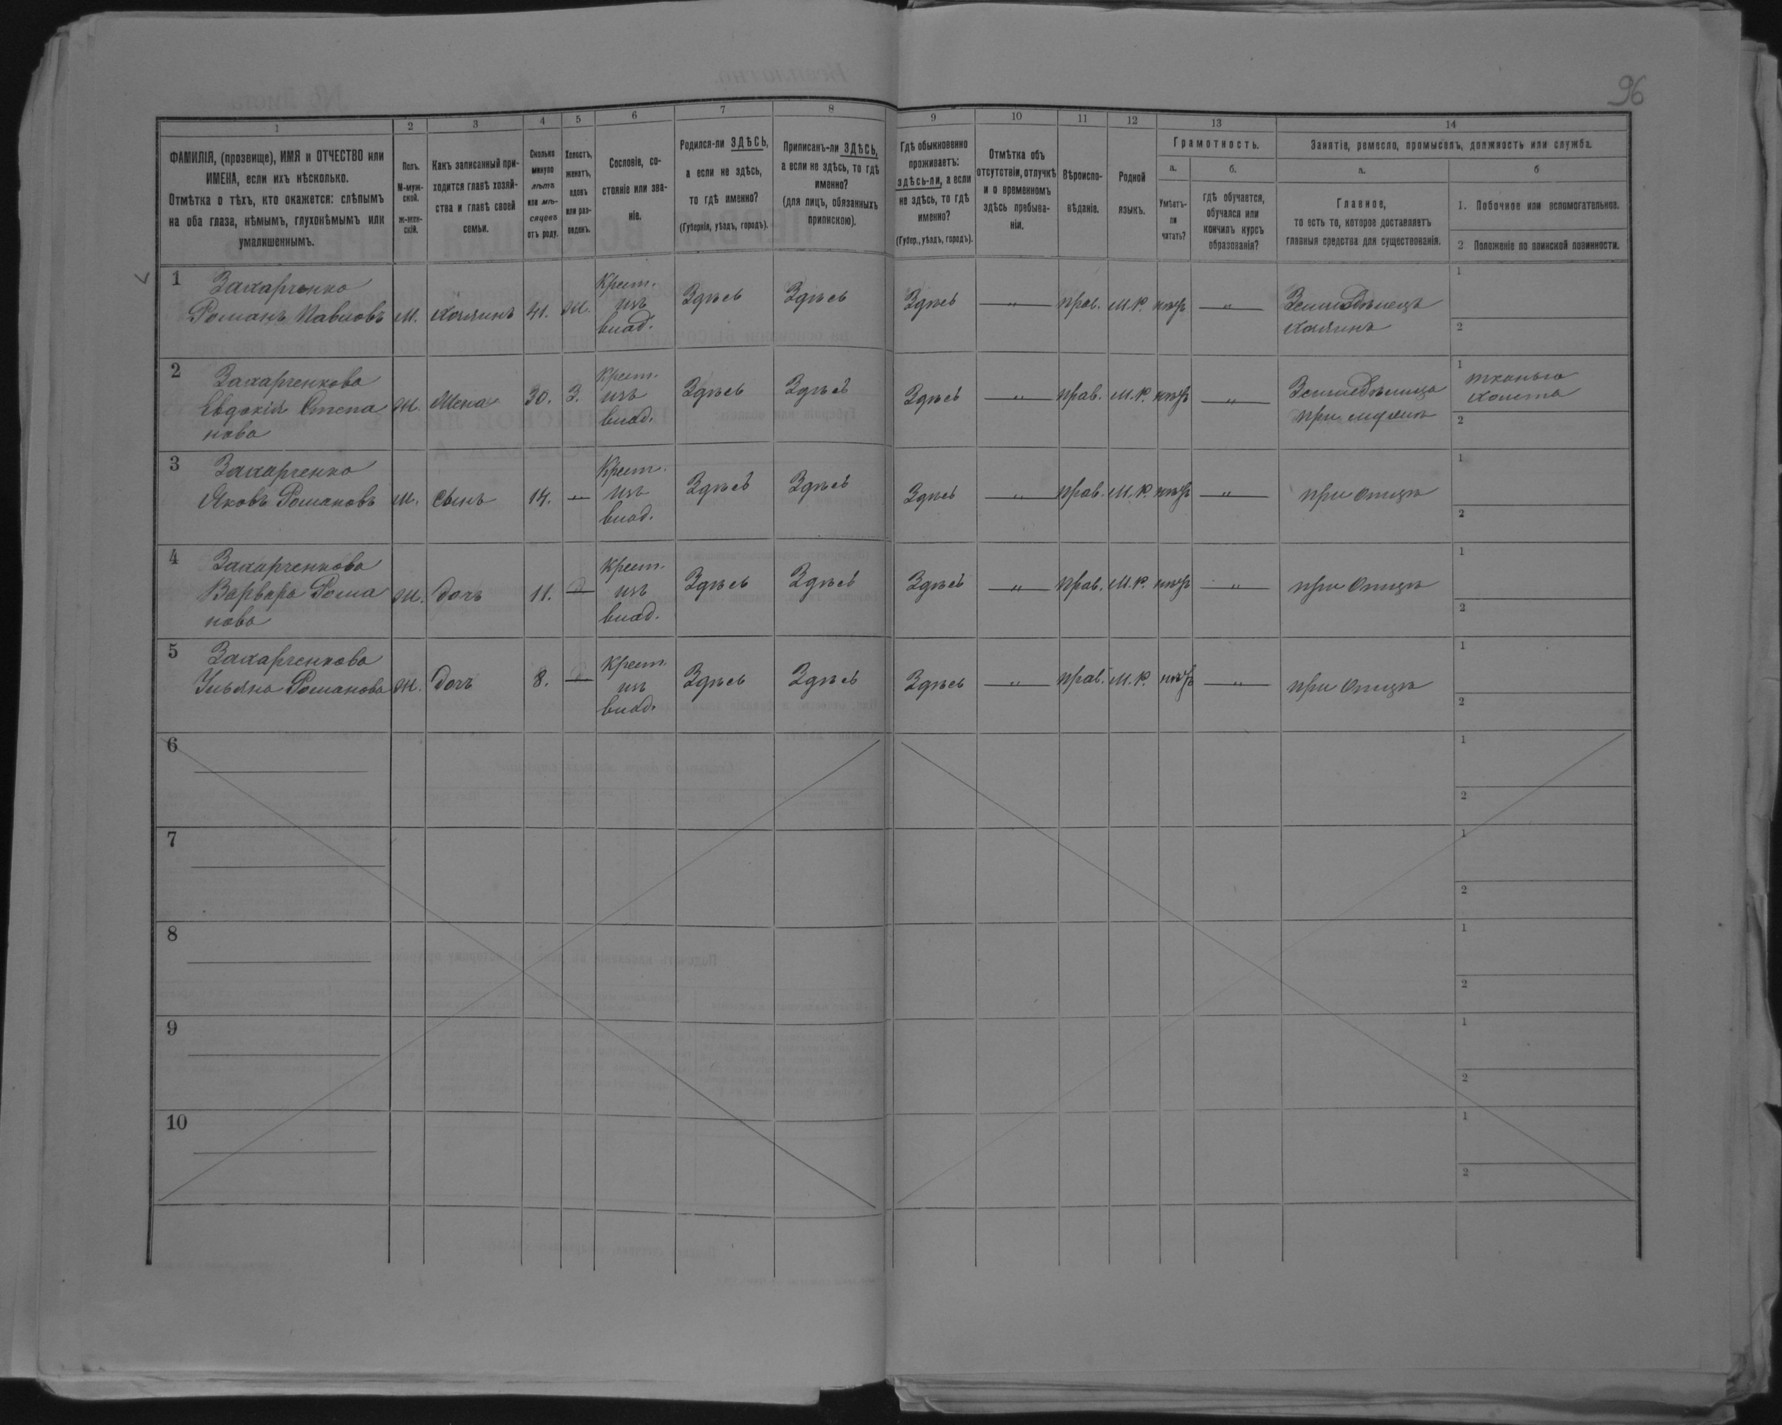 96
1
2
3
4
5
6
7
8
9
10
11
12
13
14
ФАМИЛІЯ, (прозвище), ИМЯ и ОТЧЕСТВО или
ИМЕНА, если ихъ нѣсколько.
Отмѣтка о тѣхъ, кто окажется: слѣпымъ
на оба глаза, нѣмымъ, глухонѣмымъ или
умалишеннымъ.
Полъ.
М-муж-
ской.
ж-жен-
скій.
Какъ записанный при-
ходится главѣ хозяй-
ства и главѣ своей
семьи.
Сколько
минуло
лѣтъ
или мѣ-
сяцевъ
отъ роду.
Холостъ,
женатъ,
вдовъ
или раз-
веденъ.
Сословіе, со-
стояніе или зва-
ніе.
Родился-ли ЗДѢСЬ,
а если не здѣсь,
то гдѣ именно?
(Губернія, уѣздъ, городъ).
Приписанъ-ли ЗДѢСЬ,
а если не здѣсь, то гдѣ
именно?
(для лицъ, обязанныхъ
припискою).
Гдѣ обыкновенно
проживаетъ:
здѣсь-ли, а если
не здѣсь, то гдѣ
именно?
(Губер., уѣздъ, городъ).
Отмѣтка объ
отсутствіи, отлучкѣ
и о временномъ
здѣсь пребыва-
ніи.
Вѣроиспо-
вѣданіе.
Родной
языкъ.
Грамотность.
а.
б.
Умѣетъ-
ли
читать?
гдѣ обучается,
обучался или
кончилъ курсъ
образованія?
Занятіе, ремесло, промыселъ, должность или служба.
а.
б
Главное,
то есть то, которое доставляетъ
главныя средства для существованія.
1. Побочное или вспомогательное.
2 Положеніе по воинской повинности.
1
Захарченко
Романъ Павловъ м. хозяинъ 41. ж. Крест. изъ влад. Здѣсь Здѣсь Здѣсь " прав. М.Р. нѣтъ " Земледѣлецъ хозяинъ
1
2
2
Захарченкова
Евдокія Степа
нова
ж. Жена 30. З. Крест. изъ влад. Здѣсь Здѣсь Здѣсь " прав. М.Р. нѣтъ " Земледѣлица при мужѣ
1 тканье холста
2
3
Захарченко
Яковъ Романовъ м. сынъ 14. — Крест. изъ влад. Здѣсь Здѣсь Здѣсь " прав. М.Р. нѣтъ " при отцѣ
1
2
4
Захарченкова
Варвара Рома
нова
ж. дочь 11. — Крест. изъ влад. Здѣсь Здѣсь Здѣсь " прав. М.Р. нѣтъ " при отцѣ
1
2
5
Захарченкова
Ульяна Романова ж. дочь 8. — Крест. изъ влад. Здѣсь Здѣсь Здѣсь " прав. М.Р. нѣтъ " при отцѣ
1
2
6
1
2
7
1
2
8
1
2
9
1
2
10
1
2